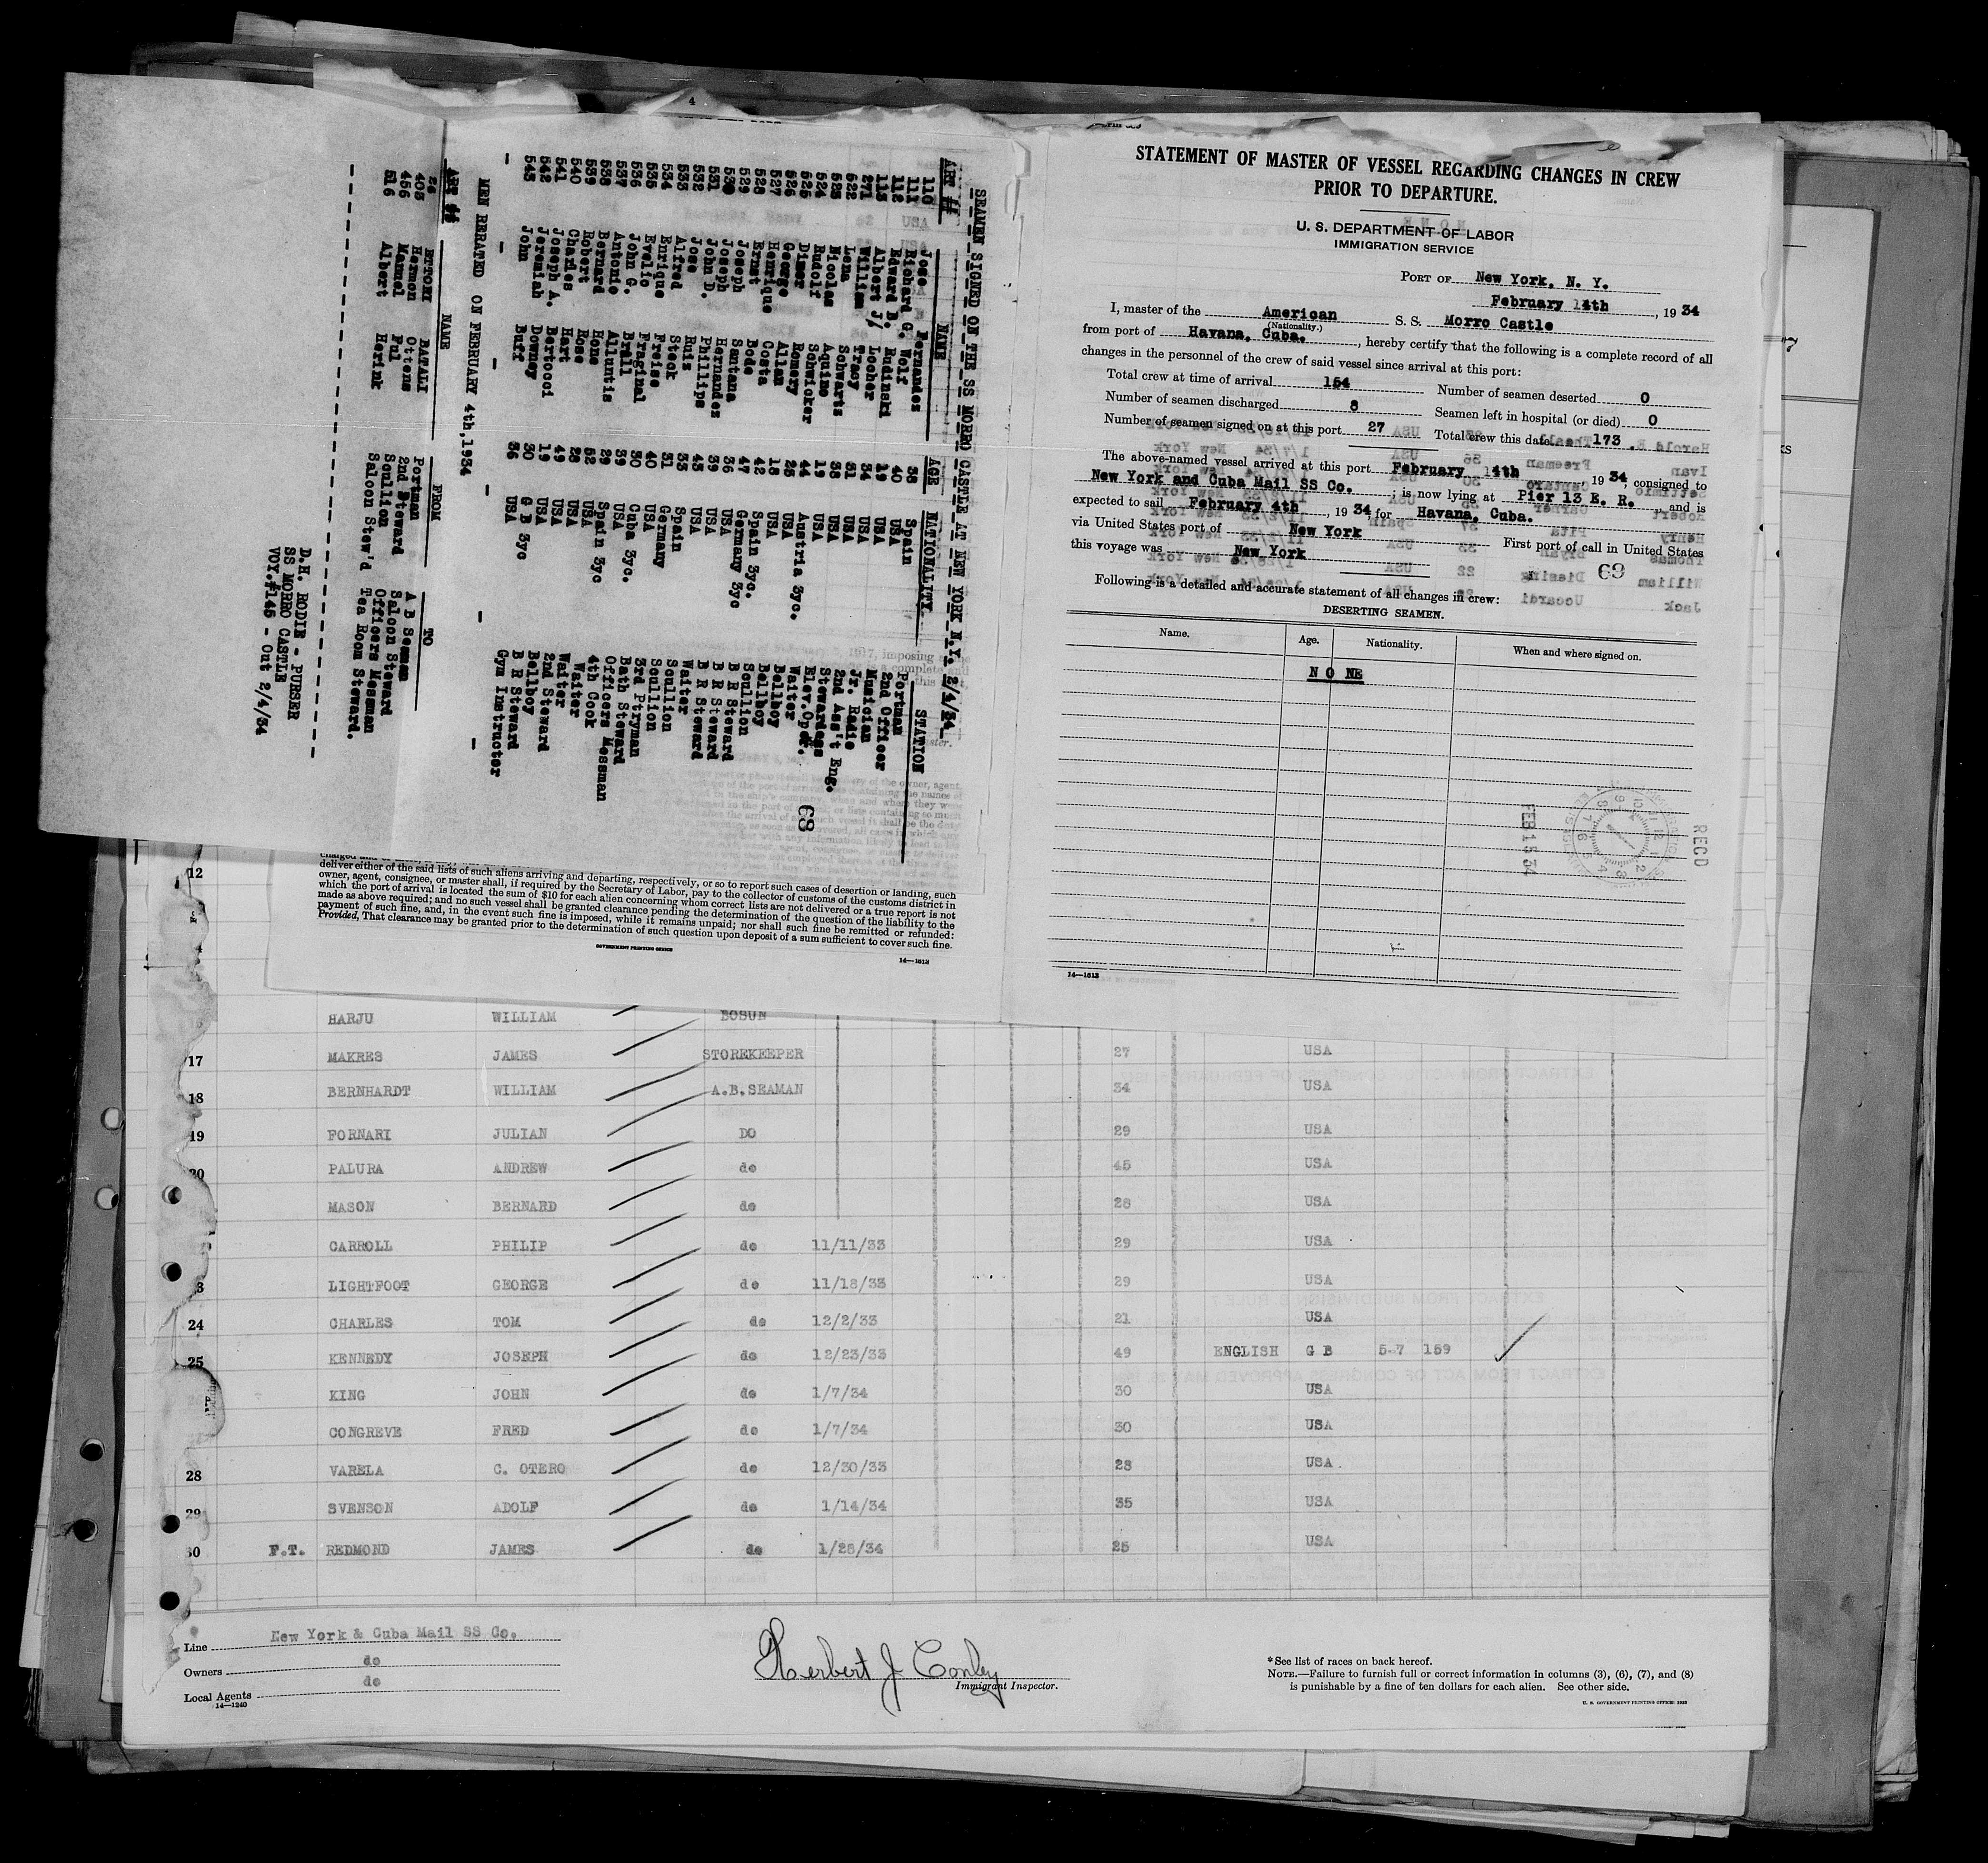 STATEMENT OF MASTER OF VESSEL REGARDING CHANGES IN CREW
PRIOR TO DEPARTURE.
U. S. DEPARTMENT OF LABOR
IMMIGRATION SERVICE
PORT OF New York, N. Y.
February 14th, 1934
I, master of the American S. S. Morro Castle
(Nationality.)
from port of Havana, Cuba., hereby certify that the following is a complete record of all
changes in the personnel of the crew of said vessel since arrival at this port:
Total crew at time of arrival 154 Number of seamen deserted 0
Number of seamen discharged 8 Seamen left in hospital (or died) 0
Number of seamen signed on at this port 27 Total crew this date 173.
The above-named vessel arrived at this port February 14th 1934 consigned to
New York and Cuba Mail SS Co. ; is now lying at Pier 13 E. R., and is
expected to sail February 4th, 1934, for Havana, Cuba.
via United States port of New York First port of call in United States
this voyage was New York
69
Following is a detailed and accurate statement of all changes in crew:
DESERTING SEAMEN.
Name. Age. Nationality. When and where signed on.
N O NE
RECD
FEB 15 34
14—1613
SEAMEN SIGNED ON THE SS MORRO CASTLE AT NEW YORK N.Y. 2/4/34
ART # NAME AGE NATIONALITY STATION
110 Jose Fernandes 38 Spain Portman
111 Richard G. Wolf 40 USA 2nd Officer
112 Edward B. Rudinski 19 USA Musician
113 Albert J/ Locher 34 USA Jr. Radio
271 William Tracy 51 USA 2nd Ass't Eng.
522 Lena Schwarts 38 USA Stewardess
523 Nicolas Aquine 19 USA Elev.Oper.
524 Rudolf Schwicker 44 Austria 3yc. Waiter
525 Dimer Romery 25 USA Bellboy
526 George Allan 18 USA Bellboy
527 Henrique Costa 42 Spain 3yc. Scullion
528 Ernst Bode 47 Germany 3yc B R Steward
529 Joseph Santana 36 USA B R Steward
530 Joseph Hernandez 39 USA B R Steward
531 John D. Phillips 45 USA Waiter
532 Jose Ruis 33 Spain Scullion
533 Alfred Steck 31 Germany Scullion
534 Enrique Freise 40 USA 3rd Ptryman
535 Evelio Fraginal 30 Cuba 3yc. Bath Steward
536 John G. Brall 39 USA Officers Messman
537 Antonio Alluntis 29 Spain 3yc 4th Cook
538 Bernard Hone 52 USA Waiter
539 Robert Rose 28 USA Waiter
540 Charles Hart 49 USA 2nd Steward
541 Joseph A. Bertocci 19 USA Bellboy
542 Jeremiah Downey 30 G B 3yc B R Steward
543 John Buff 36 USA Gym Instructor
69
MEN RERATED ON FEBRUARY 4th,1934
ART # NAME FROM TO
26 ETTORI BATALI Portman A B Seaman
403 Hermon Ottens 2nd Steward Saloon Steward
456 Manuel Ful Scullion Officers Messman
516 Albert Herink Saloon Stew'd Tea Room Steward.
D.H. RODIE - PURSER
SS MORRO CASTLE
VOY.#145 - Out 2/4/34
deliver either of the said lists of such aliens arriving and departing, respectively, or so to report such cases of desertion or landing, such
owner, agent, consignee, or master shall, if required by the Secretary of Labor, pay to the collector of customs of the customs district in
which the port of arrival is located the sum of $10 for each alien concerning whom correct lists are not delivered or a true report is not
made as above required; and no such vessel shall be granted clearance pending the determination of the question of the liability to the
payment of such fine, and, in the event such fine is imposed, while it remains unpaid; nor shall such fine be remitted or refunded:
Provided, That clearance may be granted prior to the determination of such question upon deposit of a sum sufficient to cover such fine.
GOVERNMENT PRINTING OFFICE
14—1613
12
HARJU WILLIAM BOSUN
17 MAKRES JAMES STOREKEEPER 27 USA
18 BERNHARDT WILLIAM A.B.SEAMAN 34 USA
19 FORNARI JULIAN DO 29 USA
20 PALURA ANDREW do 45 USA
MASON BERNARD do 28 USA
CARROLL PHILIP do 11/11/33 29 USA
3 LIGHTFOOT GEORGE do 11/18/33 29 USA
24 CHARLES TOM do 12/2/33 21 USA
25 KENNEDY JOSEPH do 12/23/33 49 ENGLISH G B 5-7 159
KING JOHN do 1/7/34 30 USA
CONGREVE FRED do 1/7/34 30 USA
28 VARELA C. OTERO do 12/30/33 28 USA
29 SVENSON ADOLF do 1/14/34 35 USA
30 F.T. REDMOND JAMES do 1/28/34 25 USA
Line New York & Cuba Mail SS Co.
Owners do
Local Agents do
14—1240
Herbert J Conley
Immigrant Inspector.
*See list of races on back hereof.
NOTE.—Failure to furnish full or correct information in columns (3), (6), (7), and (8)
is punishable by a fine of ten dollars for each alien. See other side.
U. S. GOVERNMENT PRINTING OFFICE: 1933